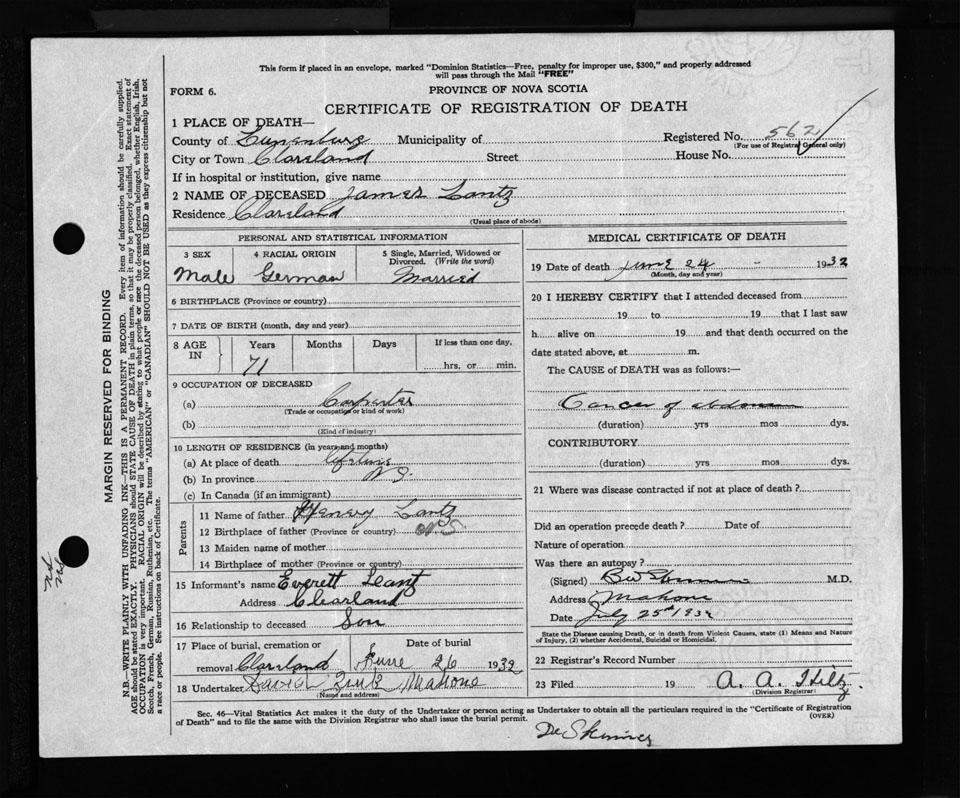 This form if placed in an envelope, marked "Dominion Statistics—Free, penalty for improper use, $300," and properly addressed
will pass through the Mail "FREE"
FORM 6.
PROVINCE OF NOVA SCOTIA
CERTIFICATE OF REGISTRATION OF DEATH
1 PLACE OF DEATH—
County of Lunenburg Municipality of Registered No. 562
(For use of Registrar General only)
City or Town Clareland Street House No.
If in hospital or institution, give name
2 NAME OF DECEASED James Lantz
Residence Clareland
(Usual place of abode)
PERSONAL AND STATISTICAL INFORMATION
3 SEX 4 RACIAL ORIGIN 5 Single, Married, Widowed or
Divorced. (Write the word)
Male German Married
6 BIRTHPLACE (Province or country)
7 DATE OF BIRTH (month, day and year)
8 AGE IN Years Months Days If less than one day,
71 hrs. or min.
9 OCCUPATION OF DECEASED
(a) Carpenter
(Trade or occupation or kind of work)
(b)
(Kind of industry)
10 LENGTH OF RESIDENCE (in years and months)
(a) At place of death
(b) In province N S.
(c) In Canada (if an immigrant)
Parents
11 Name of father Henery Lantz
12 Birthplace of father (Province or country) N S
13 Maiden name of mother
14 Birthplace of mother (Province or country)
15 Informant's name Everett Leant
Address Clearland
16 Relationship to deceased Son
17 Place of burial, cremation or Date of burial
removal Clareland June 26 1932
18 Undertaker Mahone
(Name and address)
MEDICAL CERTIFICATE OF DEATH
19 Date of death June 24 - 1932
(Month, day and year)
20 I HEREBY CERTIFY that I attended deceased from
19 to 19 that I last saw
h alive on 19 and that death occurred on the
date stated above, at m.
The CAUSE of DEATH was as follows:—
Cancer of abdomen
(duration) yrs mos dys.
CONTRIBUTORY
(duration) yrs mos dys.
21 Where was disease contracted if not at place of death?
Did an operation precede death? Date of
Nature of operation
Was there an autopsy?
(Signed) M.D.
Address Mahone
Date July 25th 1932
State the Disease causing Death, or in death from Violent Causes, state (1) Means and Nature
of Injury, (2) whether Accidental, Suicidal or Homicidal.
22 Registrar's Record Number
23 Filed 19 A. A. Hiltz
(Division Registrar)
Sec. 46—Vital Statistics Act makes it the duty of the Undertaker or person acting as Undertaker to obtain all the particulars required in the "Certificate of Registration
of Death" and to file the same with the Division Registrar who shall issue the burial permit. (OVER)
MARGIN RESERVED FOR BINDING
N.B.—WRITE PLAINLY WITH UNFADING INK—THIS IS A PERMANENT RECORD. Every item of information should be carefully supplied.
AGE should be stated EXACTLY. PHYSICIANS should STATE CAUSE OF DEATH in plain terms, so that it may be properly classified. Exact statement of
OCCUPATION is very important. RACIAL ORIGIN will be described by stating to what people or race the deceased person belonged, whether English, Irish,
Scotch, French, German, Russian, Ruthenian, etc. The terms "AMERICAN" or "CANADIAN" SHOULD NOT BE USED as they express citizenship but not
a race or people. See instructions on back of Certificate.